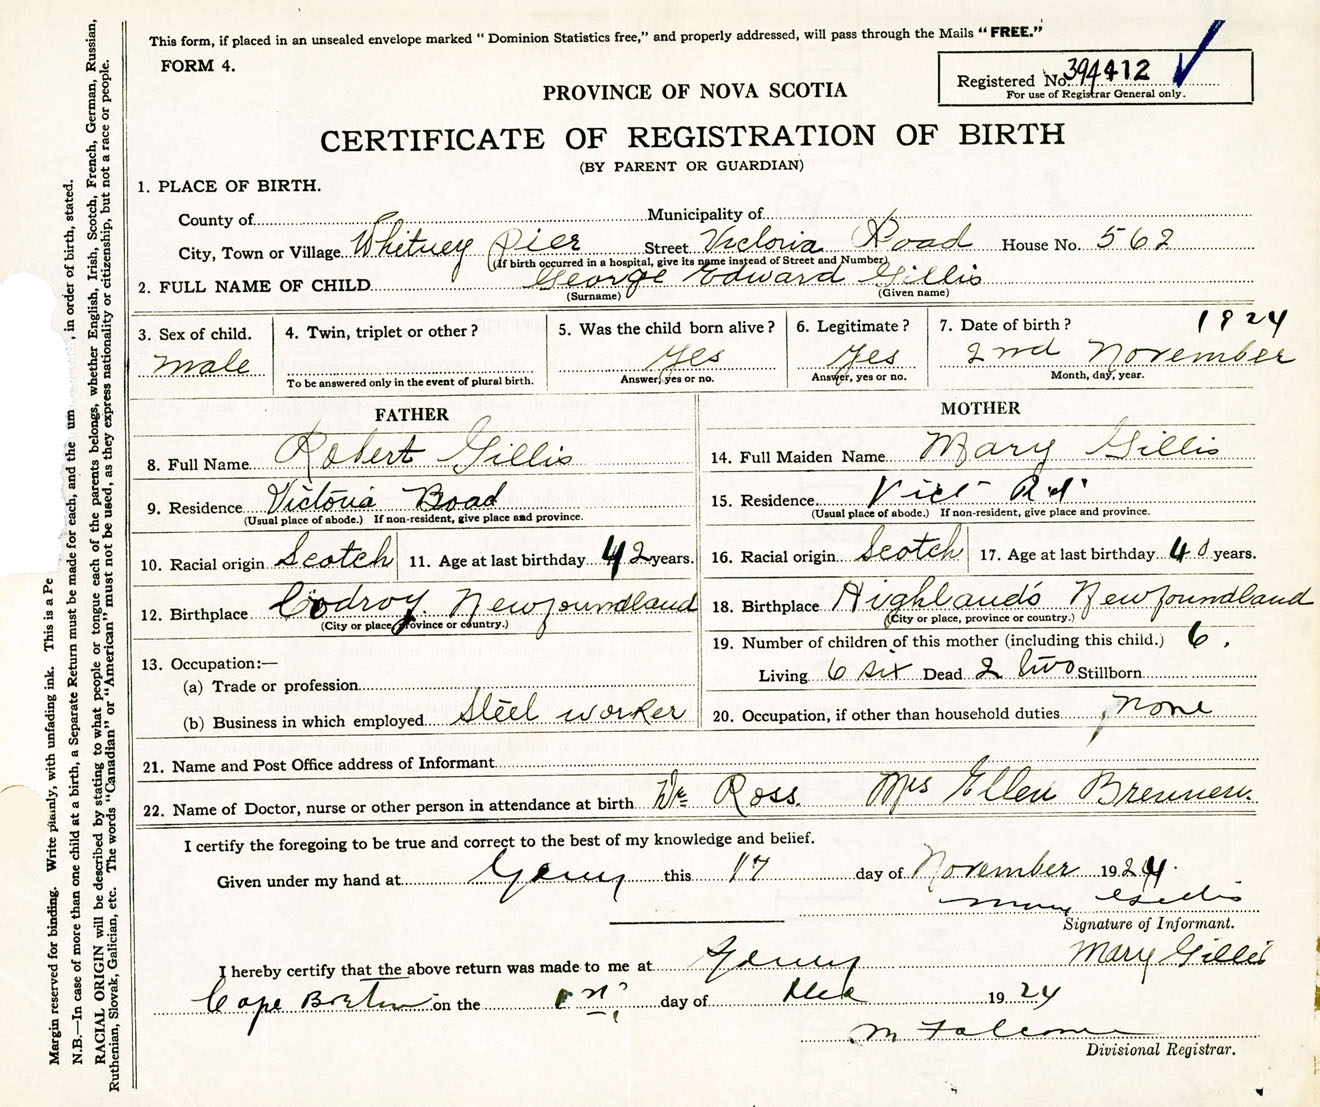 This form, if placed in an unsealed envelope marked " Dominion Statistics free," and properly addressed, will pass through the Mails " FREE."
FORM 4.
Registered No. 394412
For use of Registrar General only.
PROVINCE OF NOVA SCOTIA
CERTIFICATE OF REGISTRATION OF BIRTH
(BY PARENT OR GUARDIAN)
1. PLACE OF BIRTH.
County of Municipality of
City, Town or Village Whitney Pier Street Victoria Road House No. 562
(If birth occurred in a hospital, give its name instead of Street and Number)
2. FULL NAME OF CHILD George Edward Gillis
(Surname) (Given name)
3. Sex of child. 4. Twin, triplet or other? 5. Was the child born alive? 6. Legitimate? 7. Date of birth? 1924
male Yes Yes 2nd November
To be answered only in the event of plural birth. Answer, yes or no. Answer, yes or no. Month, day, year.
FATHER
8. Full Name Robert Gillis
9. Residence Victoria Road
(Usual place of abode.) If non-resident, give place and province.
10. Racial origin Scotch 11. Age at last birthday 42 years.
12. Birthplace Codroy. Newfoundland
(City or place, province or country.)
13. Occupation:—
(a) Trade or profession
(b) Business in which employed Steel worker
MOTHER
14. Full Maiden Name Mary Gillis
15. Residence Vict Rd
(Usual place of abode.) If non-resident, give place and province.
16. Racial origin Scotch 17. Age at last birthday 40 years.
18. Birthplace Highlands Newfoundland
(City or place, province or country.)
19. Number of children of this mother (including this child.) 6.
Living 6 six Dead 2 two Stillborn
20. Occupation, if other than household duties none
21. Name and Post Office address of Informant
22. Name of Doctor, nurse or other person in attendance at birth Dr Ross. Mrs Ellen Brennen.
I certify the foregoing to be true and correct to the best of my knowledge and belief.
Given under my hand at this 17 day of November 1924.
Mary Gillis
Signature of Informant.
Mary Gillis
I hereby certify that the above return was made to me at
Cape Breton on the 1st day of Dec 1924
M Falconer
Divisional Registrar.
Margin reserved for binding. Write plainly, with unfading ink. This is a Pe
N.B.—In case of more than one child at a birth, a Separate Return must be made for each, and the um , in order of birth, stated.
RACIAL ORIGIN will be described by stating to what people or tongue each of the parents belongs, whether English, Irish, Scotch, French, German, Russian,
Ruthenian, Slovak, Galician, etc. The words "Canadian" or "American" must not be used, as they express nationality or citizenship, but not a race or people.